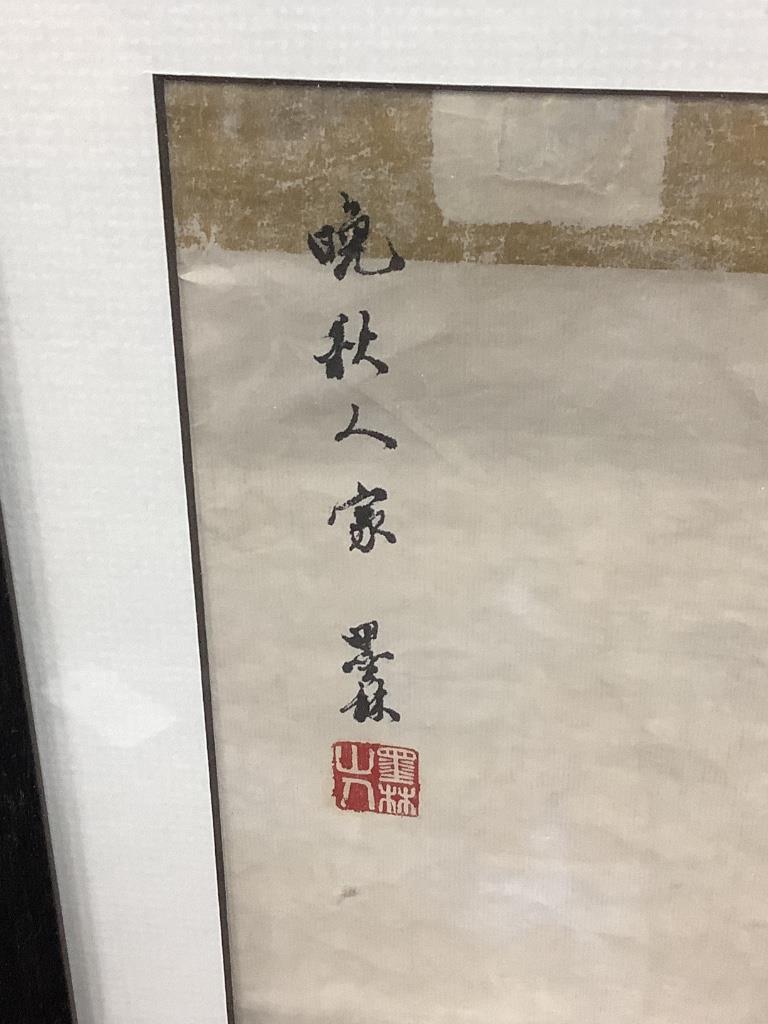 晚秋人家 墨林
墨林山人